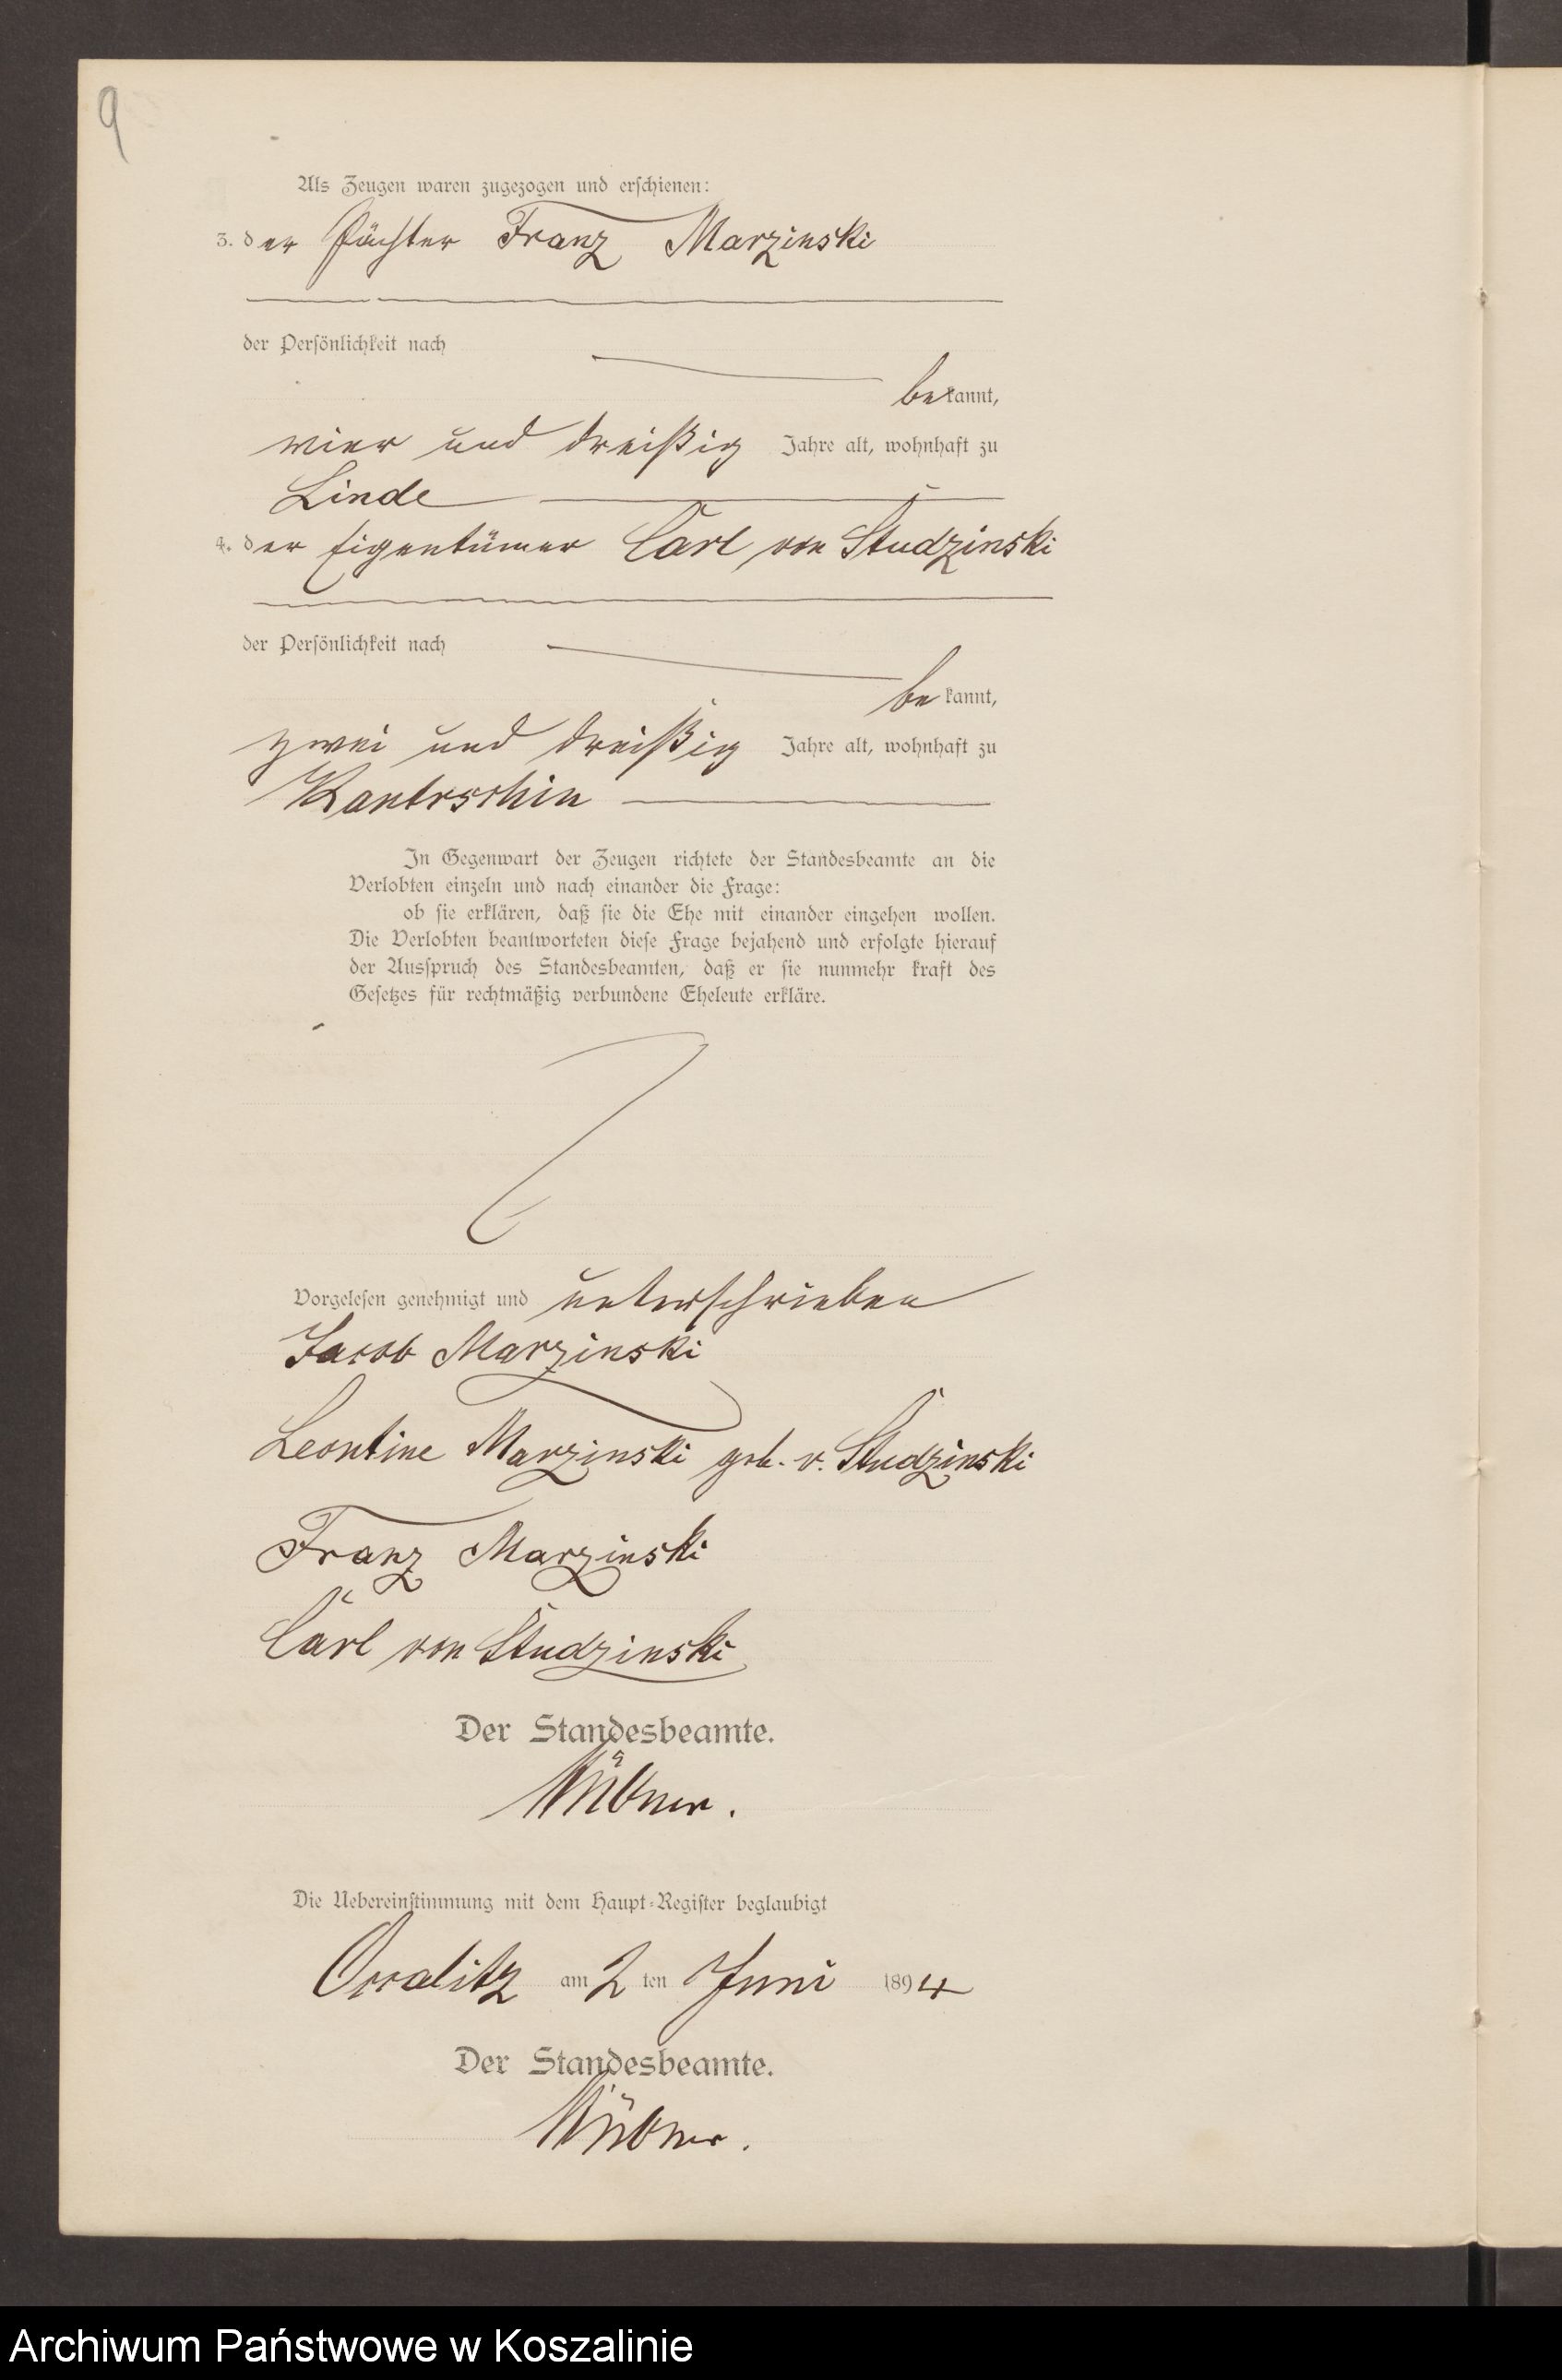 9
Als Zeugen waren zugezogen und erschienen:
3. der Pächter Franz Marzinski
der Persönlichkeit nach
bekannt,
vier und dreißig Jahre alt, wohnhaft zu
Linde
4. der Eigentümer Carl von Studzinski
der Persönlichkeit nach
bekannt,
zwei und dreißig Jahre alt, wohnhaft zu
Kantrschin
In Gegenwart der Zeugen richtete der Standesbeamte an die
Verlobten einzeln und nach einander die Frage:
ob sie erklären, daß sie die Ehe mit einander eingehen wollen.
Die Verlobten beantworteten diese Frage bejahend und erfolgte hierauf
der Ausspruch des Standesbeamten, daß er sie nunmehr kraft des
Gesetzes für rechtmäßig verbundene Eheleute erkläre.
Vorgelesen genehmigt und unterschrieben
Jacob Marzinski
Leontine Marzinski geb. v. Studzinski
Franz Marzinski
Carl von Studzinski
Der Standesbeamte.
Die Uebereinstimmung mit dem Haupt-Register beglaubigt
am 2 ten Juni 1894
Der Standesbeamte.
Archiwum Państwowe w Koszalinie